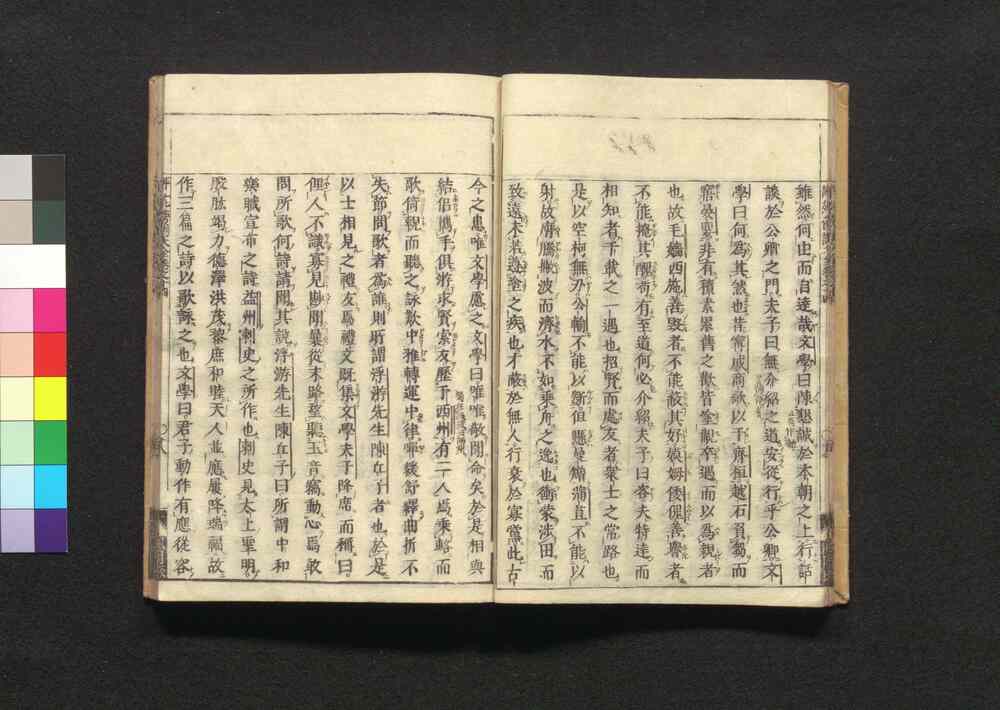 雖然何由而自達哉文學曰陳懇誠於本朝之上行話
談於公卿之門夫子曰無介紹之道安從行乎公卿文
學曰何為其然也昔甯戚商歌以干齊桓越石負芻而
寤晏嬰非有積素累舊之歡皆塗覯卒遇而以為親者
也故毛嬙西施善毀者不能蔽其好嫫姆倭傀善譽者
不能掩其醜苟有至道何必介紹夫子曰咨夫特達而
相知者千載之一遇也招賢而處友者衆士之常路也
是以空柯無刃公輸不能以斲但懸曼矰蒲苴不能以
射故膺騰撇波而濟水不如乗舟之逸也衝蒙涉田而
致遠未若遵塗之疾也才蔽於無人行衰於寡黨此古
今之患唯文學慮之文學曰唯唯敬聞命矣於是相與
結侶攜手俱游求賢索友歷于西州有二人焉乗輅而
歌倚輗而聽之詠歎中雅轉運中律嘽緩舒繹曲折不
失節問歌者為誰則所謂浮游先生陳丘子者也於是
以士相見之禮友焉禮文既集文學夫子降席而稱曰
俚人不識寡見尠聞曩從末路望聽玉音竊動心焉敢
問所歌何詩請聞其說浮游先生陳丘子曰所謂中和
樂職宣布之詩益州刺史之所作也刺史見太上聖明
股肱竭力德澤洪茂黎庶和睦天人並應屢降瑞福故
作三篇之詩以歌詠之也文學曰君子動作有應從容